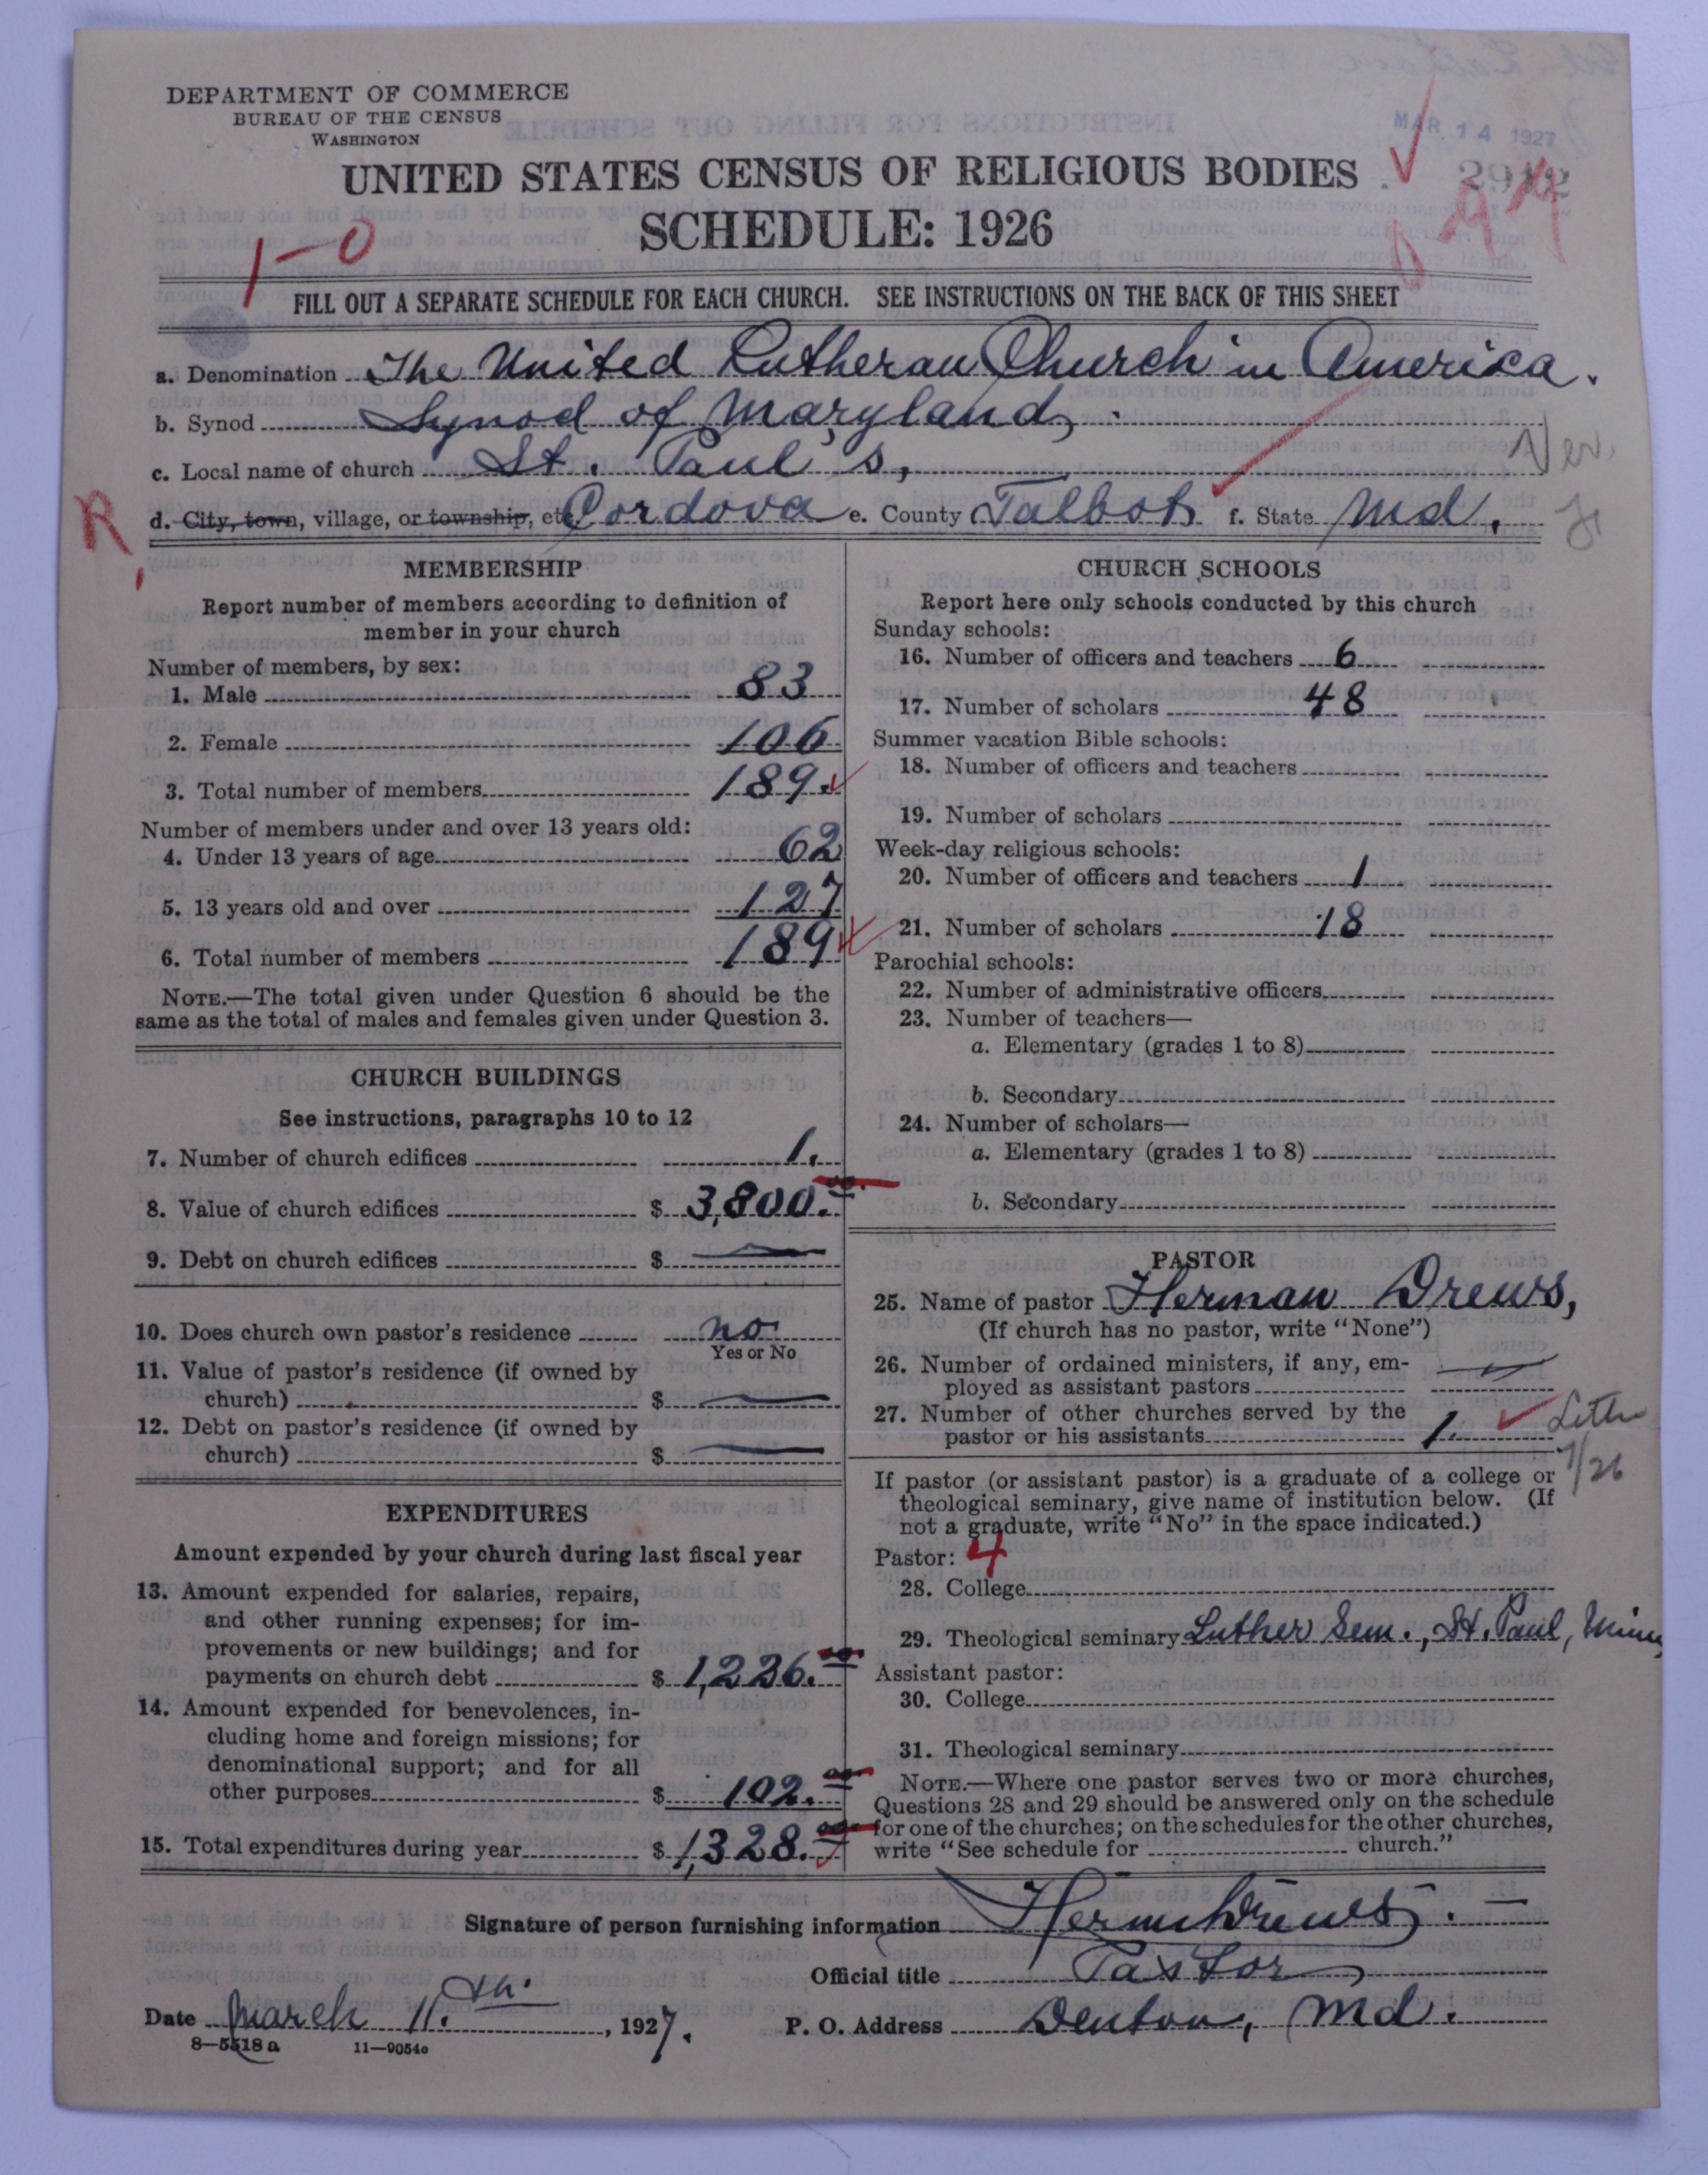 DEPARTMENT OF COMMERCE
BUREAU OF THE CENSUS
WASHINGTON
MAR. 14 1927
UNITED STATES CENSUS OF RELIGIOUS BODIES
SCHEDULE: 1926
1-0
FILL OUT A SEPARATE SCHEDULE FOR EACH CHURCH. SEE INSTRUCTIONS ON THE BACK OF THIS SHEET
a. Denomination The United Lutheran Church in America.
b. Synod Synod of Maryland,
c. Local name of church St. Paul's,
Ver.
R
d. City, town, village, or township, etc. Cordova e. County Talbot f. State Md.
MEMBERSHIP
Report number of members according to definition of
member in your church
Number of members, by sex:
1. Male 83
2. Female 106
3. Total number of members 189.
Number of members under and over 13 years old:
4. Under 13 years of age 62
5. 13 years old and over 127
6. Total number of members 189
NOTE.—The total given under Question 6 should be the
same as the total of males and females given under Question 3.
CHURCH BUILDINGS
See instructions, paragraphs 10 to 12
7. Number of church edifices 1.
8. Value of church edifices $ 3,800.00
9. Debt on church edifices $ —
10. Does church own pastor's residence no
Yes or No
11. Value of pastor's residence (if owned by
church) $ —
12. Debt on pastor's residence (if owned by
church) $ —
EXPENDITURES
Amount expended by your church during last fiscal year
13. Amount expended for salaries, repairs,
and other running expenses; for im-
provements or new buildings; and for
payments on church debt $ 1,226.00
14. Amount expended for benevolences, in-
cluding home and foreign missions; for
denominational support; and for all
other purposes $ 102.00
15. Total expenditures during year $ 1,328.00
CHURCH SCHOOLS
Report here only schools conducted by this church
Sunday schools:
16. Number of officers and teachers 6
17. Number of scholars 48
Summer vacation Bible schools:
18. Number of officers and teachers
19. Number of scholars
Week-day religious schools:
20. Number of officers and teachers 1
21. Number of scholars 18
Parochial schools:
22. Number of administrative officers
23. Number of teachers—
a. Elementary (grades 1 to 8)
b. Secondary
24. Number of scholars—
a. Elementary (grades 1 to 8)
b. Secondary
PASTOR
25. Name of pastor Herman Drews,
(If church has no pastor, write "None")
26. Number of ordained ministers, if any, em-
ployed as assistant pastors —
27. Number of other churches served by the
pastor or his assistants 1.
7/26
If pastor (or assistant pastor) is a graduate of a college or
theological seminary, give name of institution below. (If
not a graduate, write "No" in the space indicated.)
Pastor: 4
28. College
29. Theological seminary Luther Sem., St. Paul, Minn,
Assistant pastor:
30. College
31. Theological seminary
NOTE.—Where one pastor serves two or more churches,
Questions 28 and 29 should be answered only on the schedule
for one of the churches; on the schedules for the other churches,
write "See schedule for church."
Signature of person furnishing information Herm Drews.
Official title Pastor
Date March 11.th., 1927.
P. O. Address Denton, Md.
8—5518 a 11—9054c